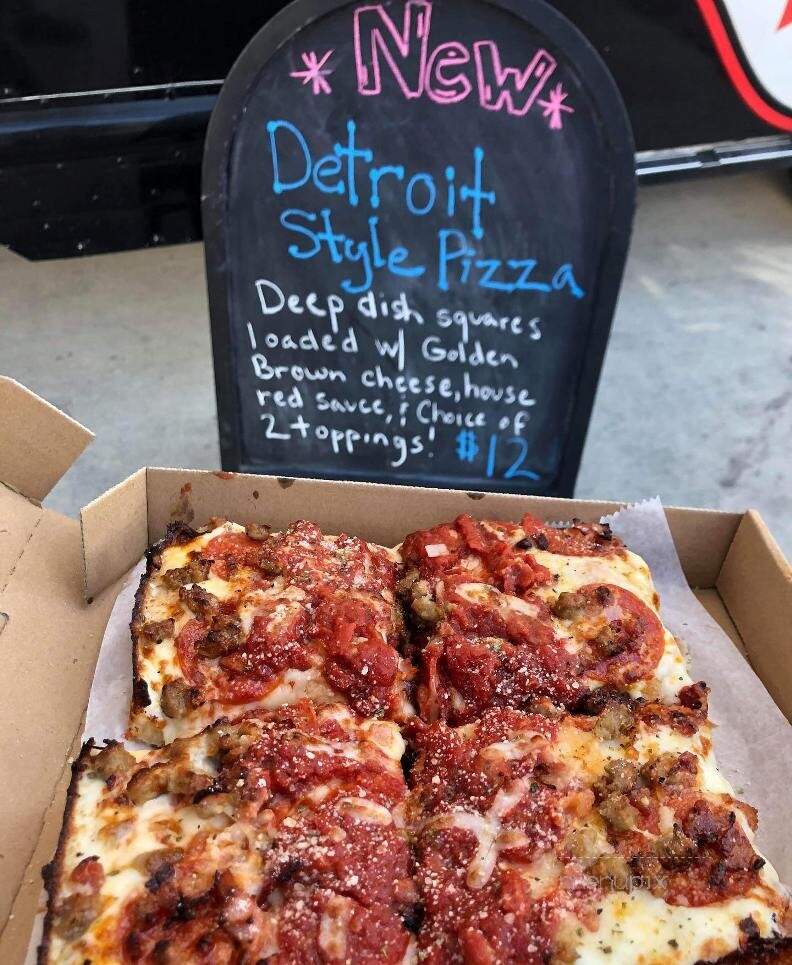 *New*
Detroit
Style Pizza
Deep dish squares
loaded w/ Golden
Brown cheese, house
red sauce, & Choice of
2 toppings! $12
menupix